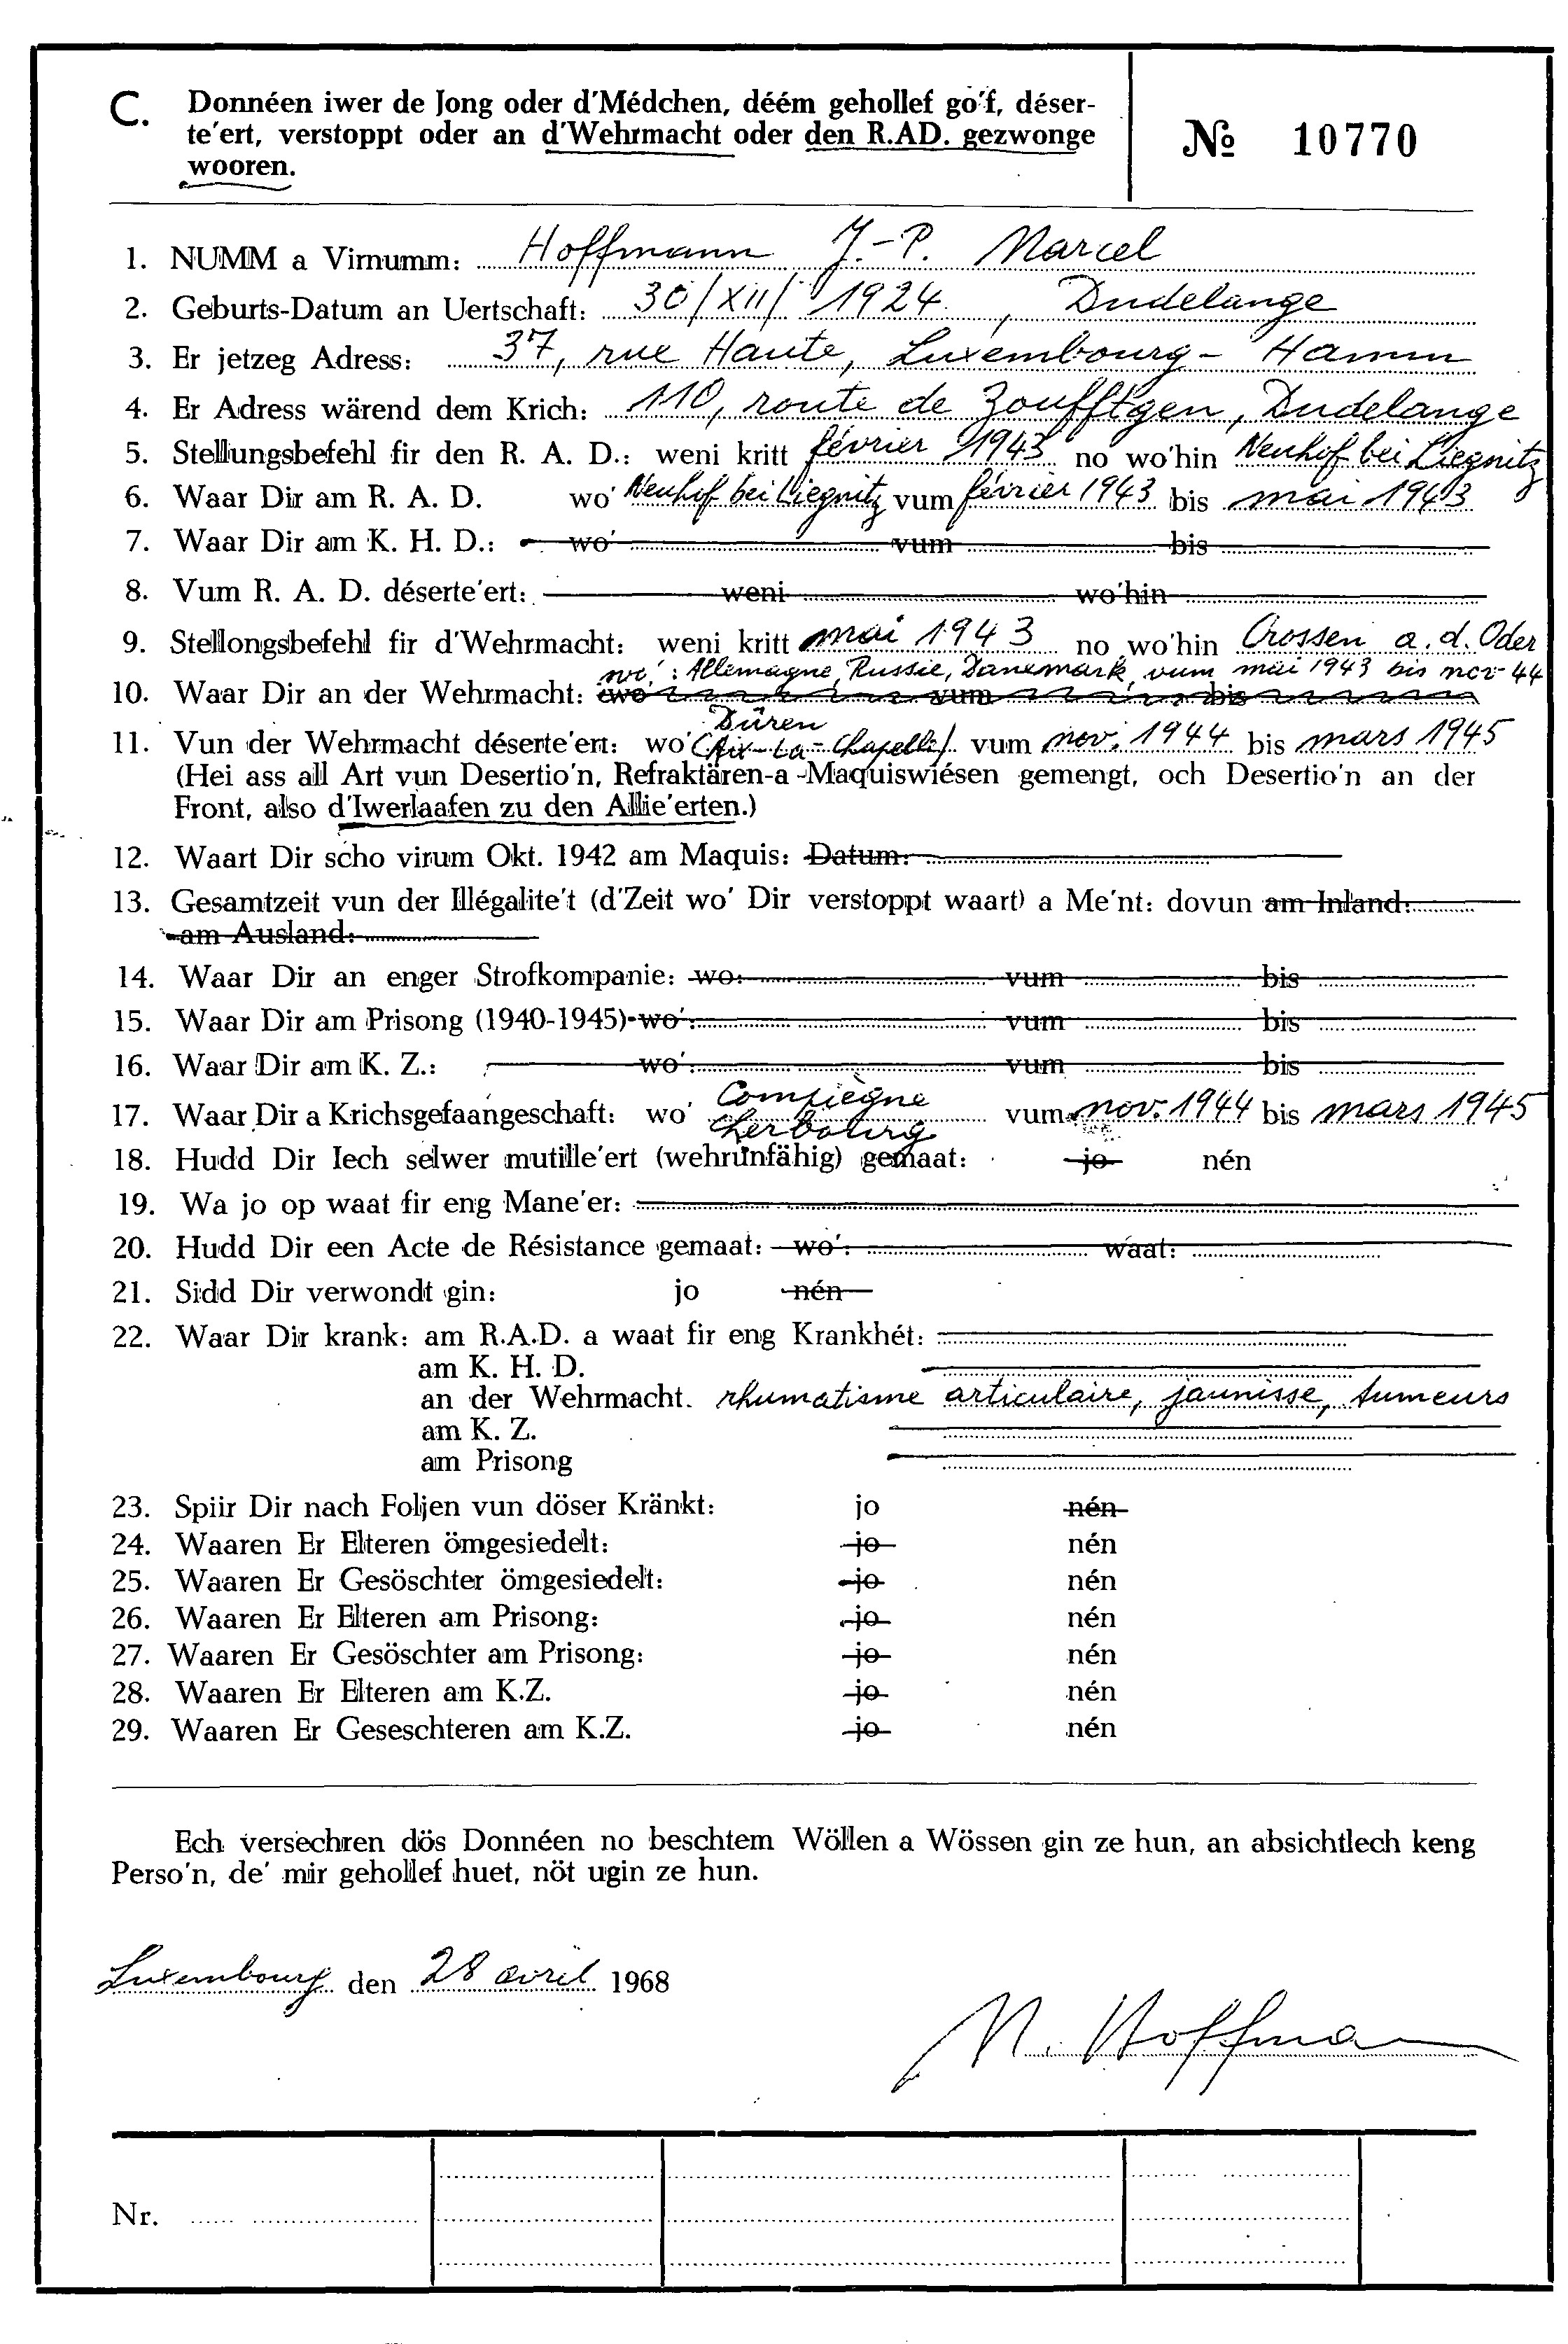 C. Donnéen iwer de Jong oder d'Médchen, déém gehollef go'f, déser-
te'ert, verstoppt oder an d'Wehrmacht oder den R.AD. gezwonge
wooren.
№ 10770
1. NUMM a Virnumm: Hoffmann J.-P. Marcel
2. Geburts-Datum an Uertschaft: 30/XII/1924, Dudelange
3. Er jetzeg Adress: 37, rue Haute, Luxembourg-Hamm
4. Er Adress wärend dem Krich: 110, route de Zoufftgen, Dudelange
5. Stellungsbefehl fir den R. A. D.: weni kritt février 1943 no wo'hin Neuhof bei Liegnitz
6. Waar Dir am R. A. D. wo' Neuhof bei Liegnitz vum février 1943 bis mai 1943
7. Waar Dir am K. H. D.: wo' vum bis
8. Vum R. A. D. déserte'ert: weni wo'hin
9. Stellongsbefehl fir d'Wehrmacht: weni kritt mai 1943 no wo'hin Crossen a. d. Oder
wo': Allemagne, Russie, Danemark, vum mai 1943 bis nov 44
10. Waar Dir an der Wehrmacht: wo vum bis
Düren
11. Vun der Wehrmacht déserte'ert: wo' (Aix-La-Chapelle) vum nov. 1944 bis mars 1945
(Hei ass all Art vun Desertio'n, Refraktären-a-Maquiswiésen gemengt, och Desertio'n an der
Front, also d'Iwerlaafen zu den Allie'erten.)
12. Waart Dir scho virum Okt. 1942 am Maquis: Datum:
13. Gesamtzeit vun der Illégalite't (d'Zeit wo' Dir verstoppt waart) a Me'nt: dovun am Inland:
am Ausland:
14. Waar Dir an enger Strofkompanie: wo: vum bis
15. Waar Dir am Prisong (1940-1945) wo': vum bis
16. Waar Dir am K. Z.: wo': vum bis
Compiègne
17. Waar Dir a Krichsgefaangeschaft: wo' Cherbourg vum nov. 1944 bis mars 1945
18. Hudd Dir Iech selwer mutille'ert (wehrunfähig) gemaat: jo nén
19. Wa jo op waat fir eng Mane'er:
20. Hudd Dir een Acte de Résistance gemaat: wo': waat:
21. Sidd Dir verwondt gin: jo nén
22. Waar Dir krank: am R.A.D. a waat fir eng Krankhét:
am K. H. D.
an der Wehrmacht. rhumatisme articulaire, jaunisse, tumeurs
am K. Z.
am Prisong
23. Spiir Dir nach Foljen vun döser Kränkt: jo nén
24. Waaren Er Elteren ömgesiedelt: jo nén
25. Waaren Er Gesöschter ömgesiedelt: jo nén
26. Waaren Er Elteren am Prisong: jo nén
27. Waaren Er Gesöschter am Prisong: jo nén
28. Waaren Er Elteren am K.Z. jo nén
29. Waaren Er Geseschteren am K.Z. jo nén
Ech versechren dös Donnéen no beschtem Wöllen a Wössen gin ze hun, an absichtlech keng
Perso'n, de' mir gehollef huet, nöt ugin ze hun.
Luxembourg den 28 avril 1968
M. Hoffmann
Nr.